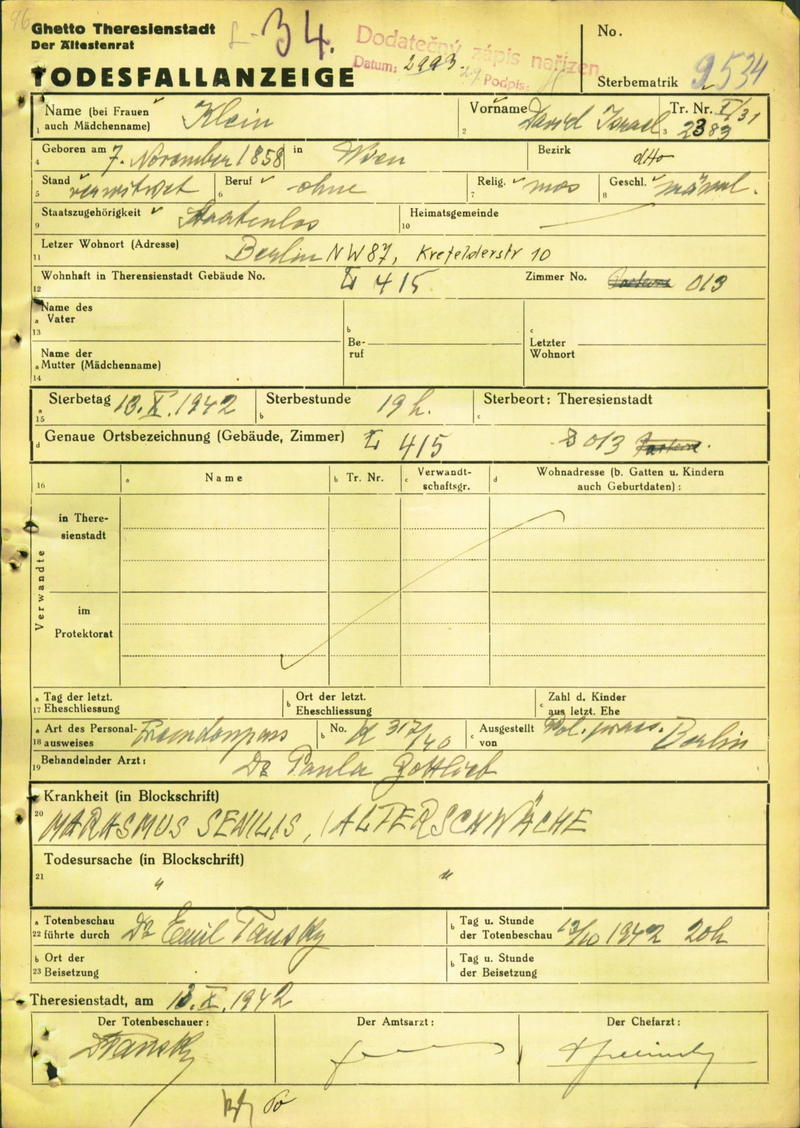 Ghetto Theresienstadt
Der Ältestenrat
34.
Dodatečný zápis nařízen
Datum: Podpis:
No.
TODESFALLANZEIGE
Sterbematrik 9534
1 Name (bei Frauen auch Mädchenname) Klein
2 Vorname David Israel
3 Tr. Nr. I/31 2383
4 Geboren am 7. November 1858 in Wien Bezirk dtto
5 Stand verwitwet 6 Beruf ohne 7 Relig. mos 8 Geschl. männl.
9 Staatszugehörigkeit Staatenlos 10 Heimatsgemeinde
11 Letzer Wohnort (Adresse) Berlin NW87, Krefelderstr 10
12 Wohnhaft in Theresienstadt Gebäude No. L 415 Zimmer No. 013
13 a Name des Vater b Beruf c Letzter Wohnort
14 a Name der Mutter (Mädchenname)
15 a Sterbetag 13. X. 1942 b Sterbestunde 19 h. c Sterbeort: Theresienstadt
d Genaue Ortsbezeichnung (Gebäude, Zimmer) L 415 013
16 a Name b Tr. Nr. c Verwandtschaftsgr. d Wohnadresse (b. Gatten u. Kindern auch Geburtdaten) :
Verwandte
in Theresienstadt
im Protektorat
17 a Tag der letzt. Eheschliessung b Ort der letzt. Eheschliessung c Zahl d. Kinder aus letzt. Ehe
18 a Art des Personalausweises Fremdenpass b No. K 317/40 c Ausgestellt von Pol. praes. Berlin
19 Behandelnder Arzt: Dr Paula Gottlieb
20 Krankheit (in Blockschrift)
MARASMUS SENILIS, (ALTERSCHWÄCHE
21 Todesursache (in Blockschrift)
" "
22 a Totenbeschau führte durch Dr Emil Tansky b Tag u. Stunde der Totenbeschau 13/10 1942 20h
23 b Ort der Beisetzung b Tag u. Stunde der Beisetzung
Theresienstadt, am 13. X. 1942
Der Totenbeschauer: Der Amtsarzt: Der Chefarzt:
DrTansky